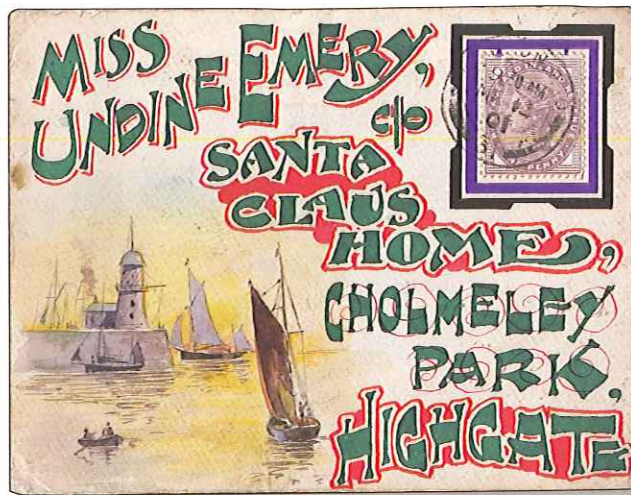 MISS
UNDINE EMERY,
C/O
SANTA
CLAUS
HOME,
CHOLMELEY
PARK,
HIGHGATE
PENNY